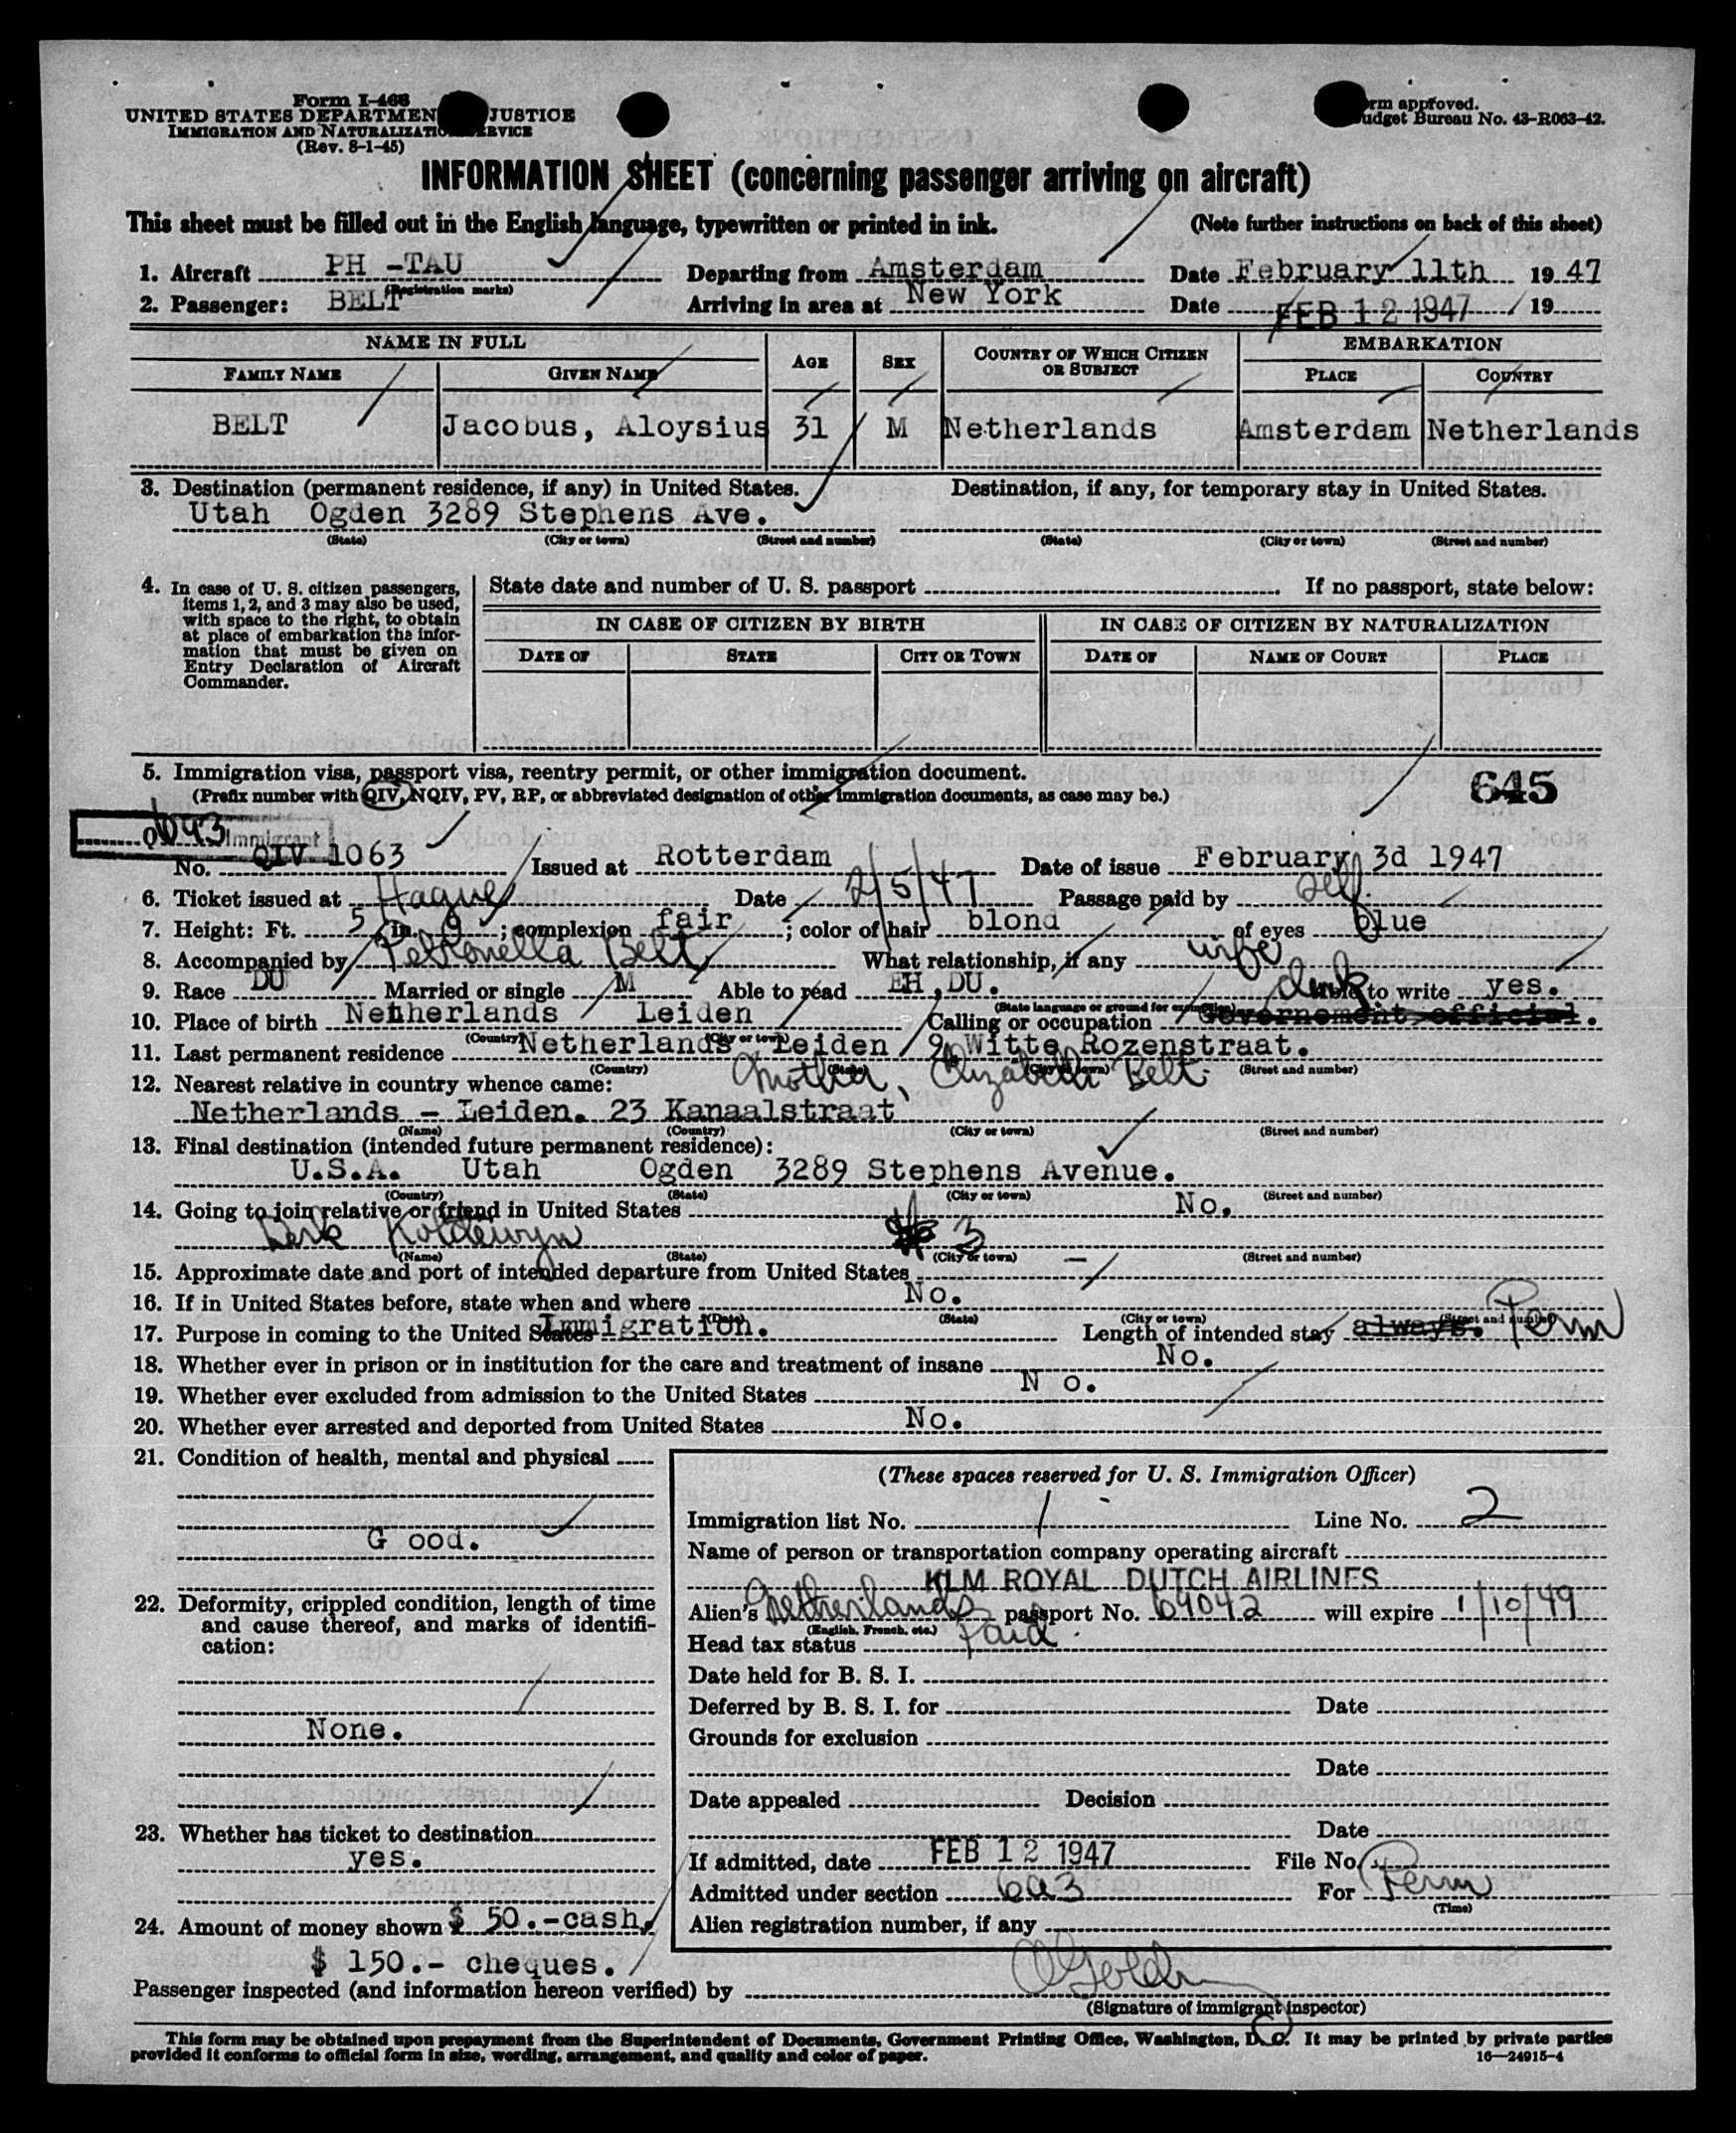 Form I-466
UNITED STATES DEPARTMEN JUSTICE
IMMIGRATION AND NATURALIZATIO ERVICE
(Rev. 8-1-45)
rm approved.
udget Bureau No. 43-R063-42.
INFORMATION SHEET (concerning passenger arriving on aircraft)
This sheet must be filled out in the English language, typewritten or printed in ink. (Note further instructions on back of this sheet)
1. Aircraft PH -TAU Departing from Amsterdam Date February 11th 1947
(Registration marks)
2. Passenger: BELT Arriving in area at New York Date FEB 12 1947 19
NAME IN FULL AGE SEX COUNTRY OF WHICH CITIZEN OR SUBJECT EMBARKATION
FAMILY NAME GIVEN NAME PLACE COUNTRY
BELT Jacobus, Aloysius 31 M Netherlands Amsterdam Netherlands
3. Destination (permanent residence, if any) in United States. Destination, if any, for temporary stay in United States.
Utah Ogden 3289 Stephens Ave.
(State) (City or town) (Street and number) (State) (City or town) (Street and number)
4. In case of U. S. citizen passengers, items 1, 2, and 3 may also be used, with space to the right, to obtain at place of embarkation the information that must be given on Entry Declaration of Aircraft Commander.
State date and number of U. S. passport If no passport, state below:
IN CASE OF CITIZEN BY BIRTH IN CASE OF CITIZEN BY NATURALIZATION
DATE OF STATE CITY OR TOWN DATE OF NAME OF COURT PLACE
5. Immigration visa, passport visa, reentry permit, or other immigration document.
(Prefix number with QIV, NQIV, PV, RP, or abbreviated designation of other immigration documents, as case may be.)
645
Immigrant
No. QIV 1063 Issued at Rotterdam Date of issue February 3d 1947
6. Ticket issued at Hague Date 2/5/47 Passage paid by self.
7. Height: Ft. 5 in. 9 ; complexion fair ; color of hair blond of eyes blue
8. Accompanied by Petronella Belt What relationship, if any wife
9. Race DU Married or single M Able to read EH, DU. Able to write yes.
(State language or ground for exemption)
clerk
10. Place of birth Netherlands Leiden Calling or occupation Governement official.
(Country) (City or town)
11. Last permanent residence Netherlands Leiden 9, Witte Rozenstraat.
(Country) (State) (City or town) (Street and number)
12. Nearest relative in country whence came: mother, Elizabeth Belt
Netherlands - Leiden. 23 Kanaalstraat
(Name) (Country) (City or town) (Street and number)
13. Final destination (intended future permanent residence):
U.S.A. Utah Ogden 3289 Stephens Avenue.
(Country) (State) (City or town) (Street and number)
14. Going to join relative or friend in United States No.
Derk Koldewyn # 3
(Name) (State) (City or town) (Street and number)
15. Approximate date and port of intended departure from United States -
16. If in United States before, state when and where No.
(Date) (State) (City or town) (Street and number)
17. Purpose in coming to the United States Immigration. Length of intended stay always. Perm
18. Whether ever in prison or in institution for the care and treatment of insane No.
19. Whether ever excluded from admission to the United States N o.
20. Whether ever arrested and deported from United States No.
21. Condition of health, mental and physical
G ood.
22. Deformity, crippled condition, length of time and cause thereof, and marks of identification:
None.
23. Whether has ticket to destination
yes.
24. Amount of money shown $ 50.-cash,
$ 150.- cheques.
(These spaces reserved for U. S. Immigration Officer)
Immigration list No. 1 Line No. 2
Name of person or transportation company operating aircraft
KLM ROYAL DUTCH AIRLINES
Alien's Netherlands passport No. 64042 will expire 1/10/49
(English, French, etc.)
Head tax status Paid
Date held for B. S. I.
Deferred by B. S. I. for Date
Grounds for exclusion
Date
Date appealed Decision
Date
If admitted, date FEB 12 1947 File No.
Admitted under section 6a3 For Perm
(Time)
Alien registration number, if any
Passenger inspected (and information hereon verified) by
(Signature of immigrant inspector)
This form may be obtained upon prepayment from the Superintendent of Documents, Government Printing Office, Washington, D. C. It may be printed by private parties
provided it conforms to official form in size, wording, arrangement, and quality and color of paper.
16—24915-4